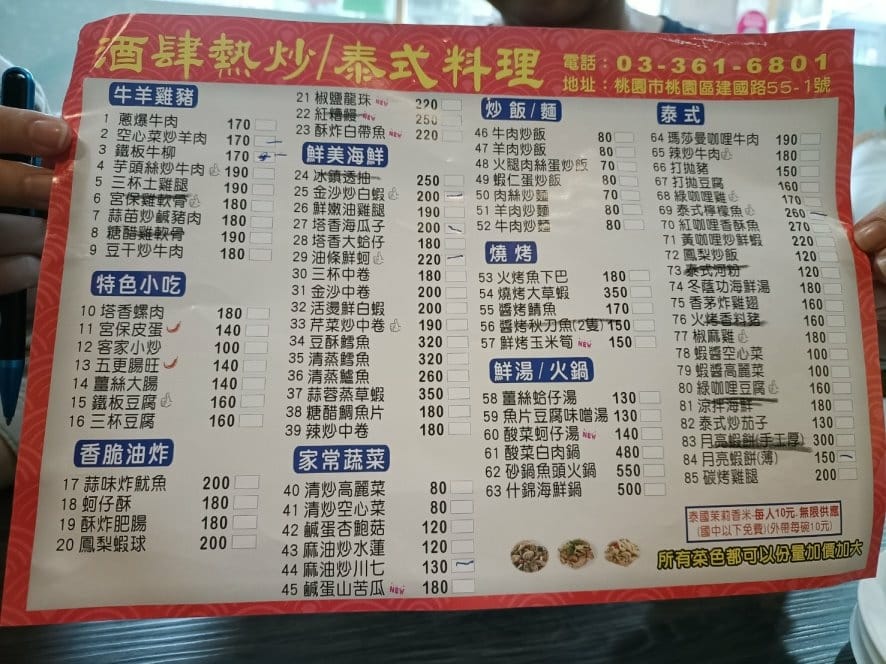 酒肆熱炒/泰式料理
電話：03-361-6801
地址：桃園市桃園區建國路55-1號
牛羊雞豬
1 蔥爆牛肉 170
2 空心菜炒羊肉 170
3 鐵板牛柳 170
4 芋頭絲炒牛肉 190
5 三杯土雞腿 190
6 宮保雞軟骨 180
7 蒜苗炒鹹豬肉 180
8 糖醋雞軟骨 190
9 豆干炒牛肉 180
特色小吃
10 塔香螺肉 180
11 宮保皮蛋 140
12 客家小炒 100
13 五更腸旺 140
14 薑絲大腸 140
15 鐵板豆腐 160
16 三杯豆腐 160
香脆油炸
17 蒜味炸魷魚 200
18 蚵仔酥 180
19 酥炸肥腸 180
20 鳳梨蝦球 200
21 椒鹽龍珠 NEW 220
22 紅糟鰻 NEW 250
23 酥炸白帶魚 NEW 220
鮮美海鮮
24 冰鎮透抽 250
25 金沙炒白蝦 200
26 鮮嫩油雞腿 190
27 塔香海瓜子 200
28 塔香大蛤仔 180
29 油條鮮蚵 220
30 三杯中卷 180
31 金沙中卷 200
32 活燙鮮白蝦 200
33 芹菜炒中卷 190
34 豆酥鱈魚 320
35 清蒸鱈魚 320
36 清蒸鱸魚 260
37 蒜蓉蒸草蝦 350
38 糖醋鯛魚片 180
39 辣炒中卷 180
家常蔬菜
40 清炒高麗菜 80
41 清炒空心菜 80
42 鹹蛋杏鮑菇 120
43 麻油炒水蓮 120
44 麻油炒川七 130
45 鹹蛋山苦瓜 NEW 180
炒飯/麵
46 牛肉炒飯 80
47 羊肉炒飯 80
48 火腿肉絲蛋炒飯 70
49 蝦仁蛋炒飯 80
50 肉絲炒麵 70
51 羊肉炒麵 80
52 牛肉炒麵 80
燒烤
53 火烤魚下巴 180
54 燒烤大草蝦 350
55 醬烤鯖魚 170
56 醬烤秋刀魚(2隻) 150
57 鮮烤玉米筍 NEW 150
鮮湯/火鍋
58 薑絲蛤仔湯 130
59 魚片豆腐味噌湯 130
60 酸菜蚵仔湯 NEW 140
61 酸菜白肉鍋 480
62 砂鍋魚頭火鍋 550
63 什錦海鮮鍋 500
泰式
64 瑪莎曼咖哩牛肉 190
65 辣炒牛肉 180
66 打拋豬 150
67 打拋豆腐 160
68 綠咖哩雞 170
69 泰式檸檬魚 260
70 紅咖哩香酥魚 270
71 黃咖哩炒鮮蝦 220
72 鳳梨炒飯 120
73 泰式河粉 120
74 冬蔭功海鮮湯 180
75 香茅炸雞翅 160
76 火烤香料豬 160
77 椒麻雞 160
78 蝦醬空心菜 100
79 蝦醬高麗菜 100
80 綠咖哩豆腐 160
81 涼拌海鮮 180
82 泰式炒茄子 130
83 月亮蝦餅(手工厚) 300
84 月亮蝦餅(薄) 150
85 碳烤雞腿 200
泰國茉莉香米:每人10元.無限供應
(國中以下免費)(外帶每碗10元)
所有菜色都可以份量加價加大